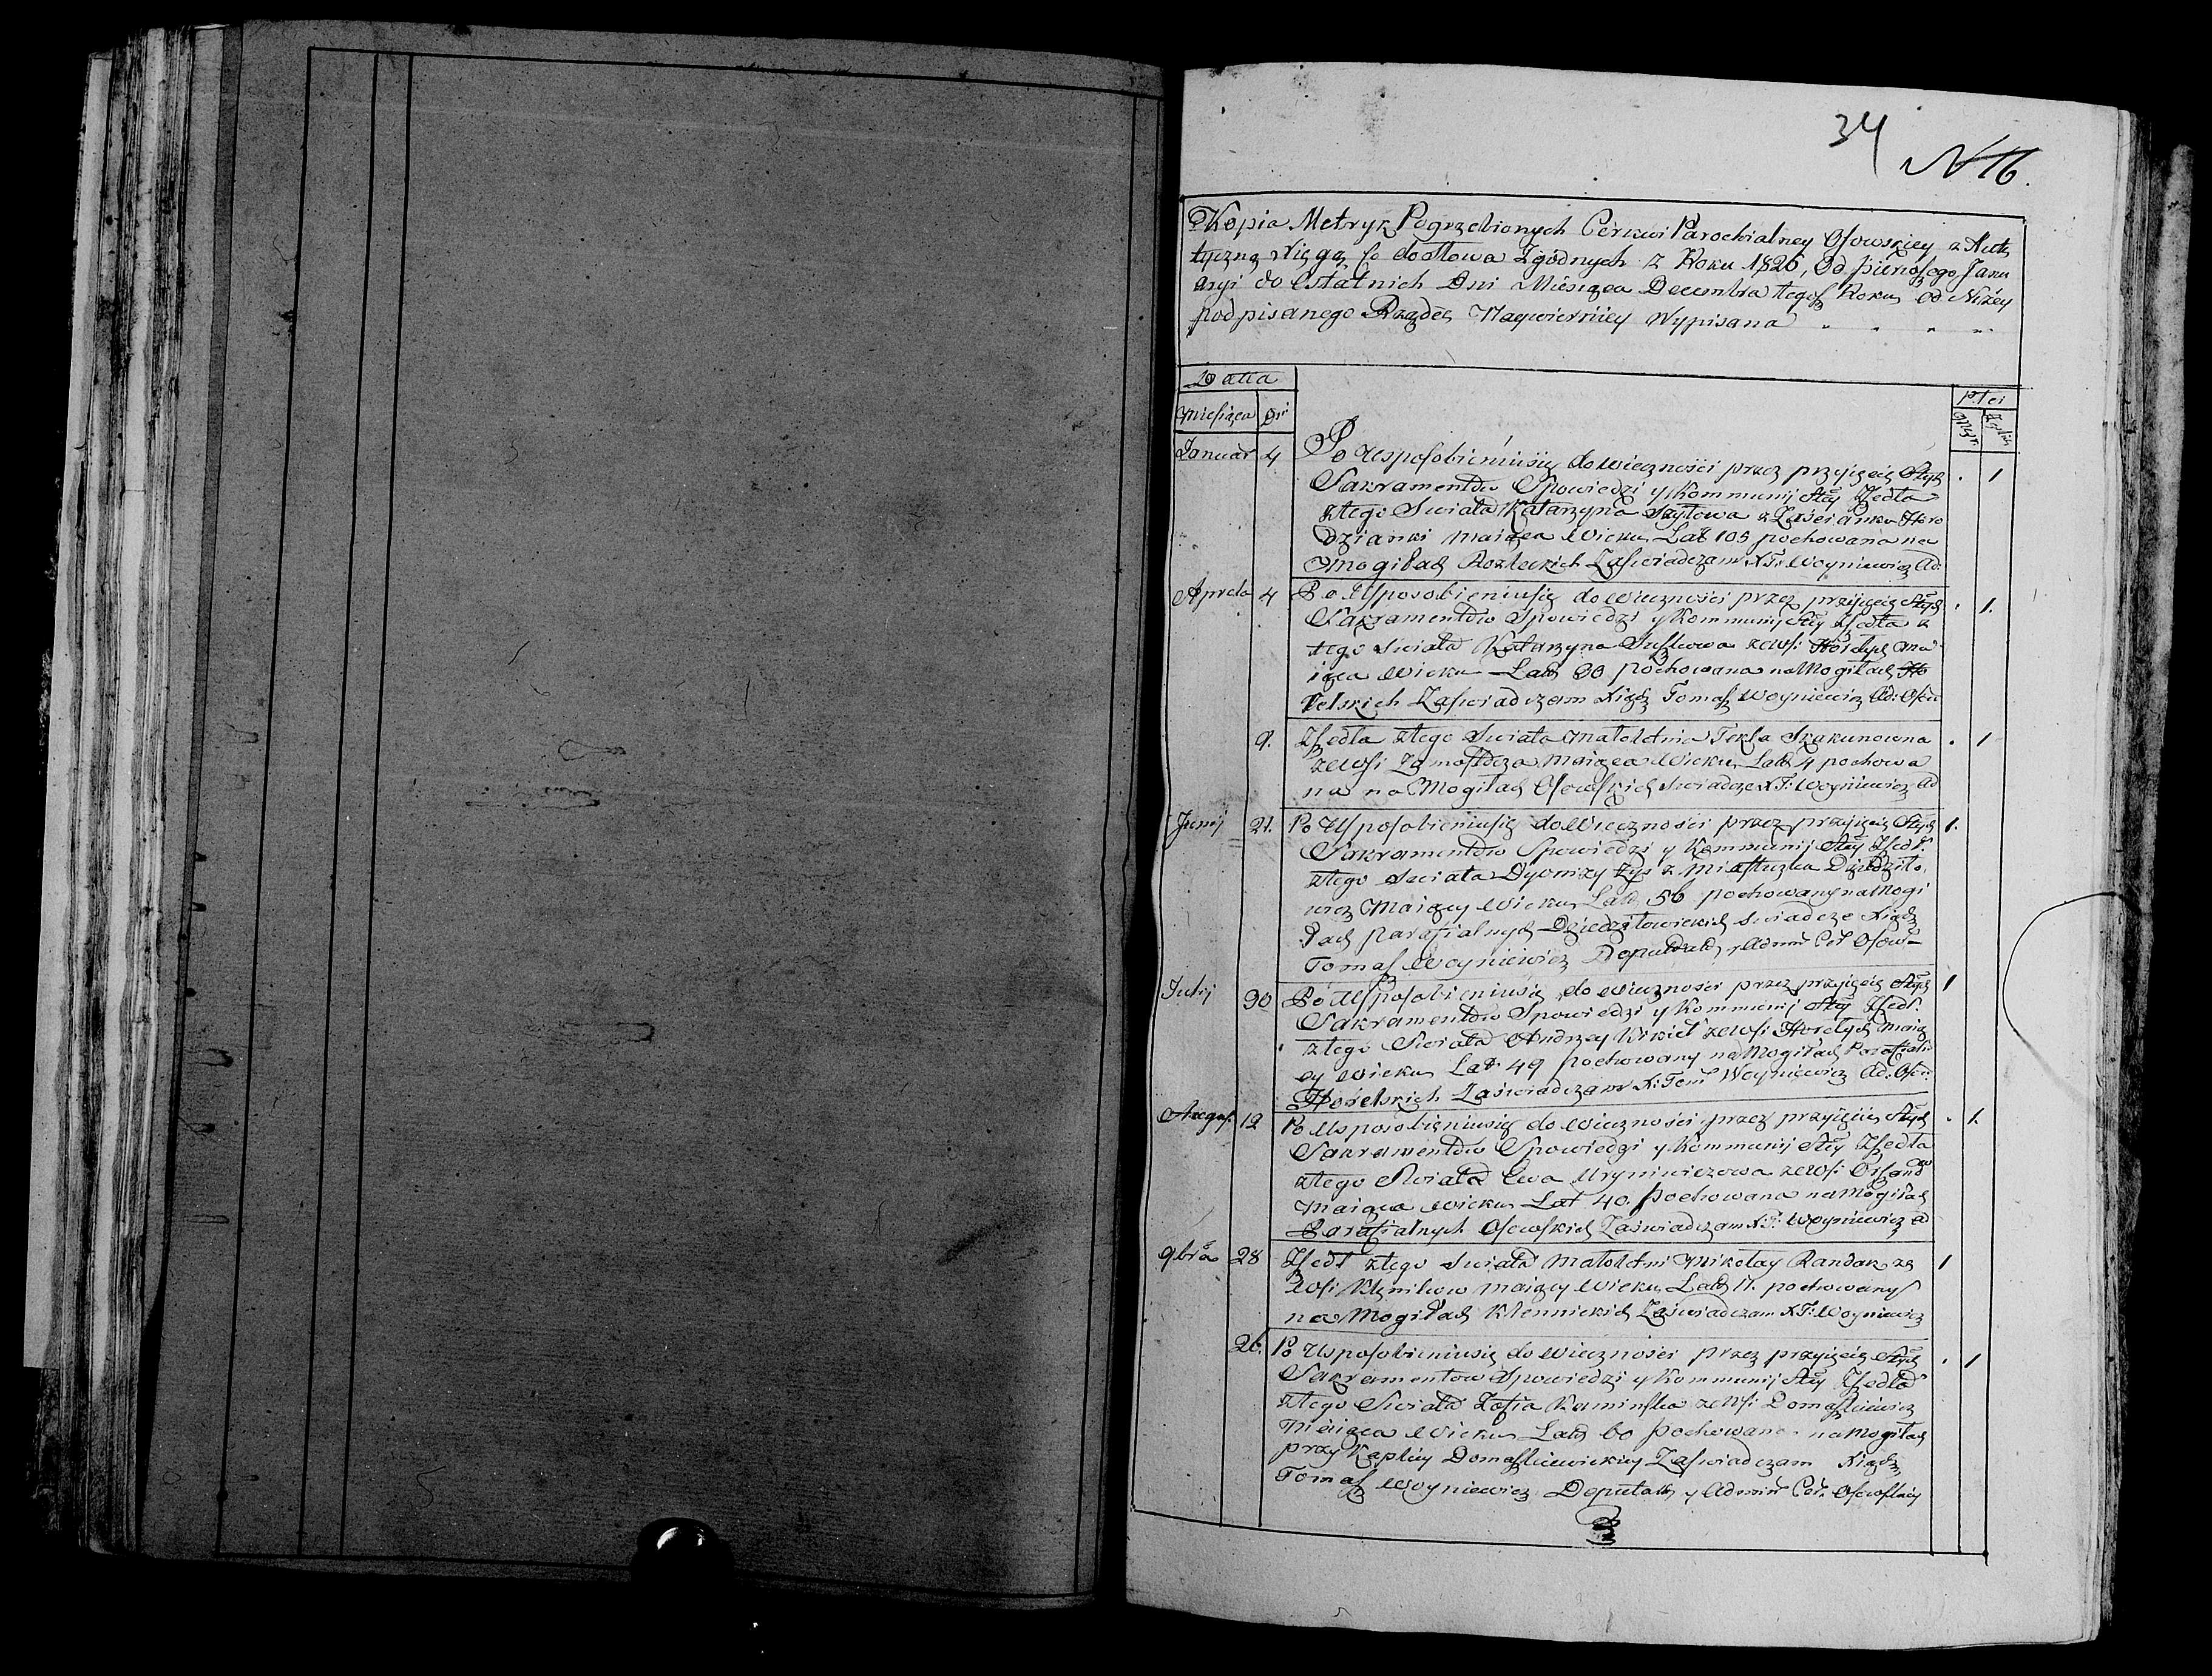 34
N 16.
Kopia Metryk Pogrzebionych Cerkwi Parochialney Osowskiey z Aute
tyczną Xięgą Co do słowa Zgodnych z Roku 1826, Od pierwszego Janu
aryi do Ostatnich Dni Miesiąca Decembra tegoż Roku od Niżey
podpisanego Rządcę Naywierniey Wypisana
Datta
Miesiąca Dni
Płci
Januar 4 Po usposobieniusię do wieczności przez przyięcie Stych . 1
Sakramentów Spowiedzi y Kommunij Stey Zeszła
z tego Swiata Katarzyna Szyłowa z Zascianku Horo
dzianki maiąca Wieku Lat 105 pochowana na
Mogiłach Kozleckich Zaswiadczam X T: Woyniewicz Ad:
Aprela 4 Po Usposobieniusię do Wieczności przez przyięcie Stych . 1.
Sakramentów Spowiedzi y Kommunij Stey Zeszła z
tego Swiata Katarzyna Suszkowa ze Wsi Horelych ma
iąca Wieku Lat 90 pochowana na Mogiłach Ho
relskich Zaswiadczam Xiądz Tomasz Woyniewicz Ad: Osow
9. Zeszła z tego Swiata małoletnia Tekla Skakunowna . 1
ze Wsi Zamoszcza maiąca Wieku Lat 4 pochowa
na na Mogiłach Osowskich Swiadczę X T: Woyniewicz Ad
Junij 21. Po Usposobieniusię do Wieczności przez przyięcie Stych 1.
Sakramentów Spowiedzi y Kommunij Stey Zszedł
z tego Swiata Dyonizy Zys z Miasteczka Dziedziło
wicz Maiący Wieku Lat 56 pochowany na Mogi
łach parafialnych Dziedziłowickich Swiadcze Xiądz
Tomasz Woyniewicz Deputat y Admin Cer Osow
Julij 30 Po Usposobieniusię do Wieczności przez przyięcie Stych 1
Sakramentów Spowiedzi y Kommunij Stey Zszedł
z tego Swiata Andrzey Kikieł ze Wsi Horelych maią
cy Wieku Lat 49 pochowany na Mogiłach Parafialn
Horelskich Zaswiadczam X: Tom Woyniewicz Ad: Osow:
August 12 Po Usposobieniusię do Wieczności przez przyięcie Stych . 1.
Sakramentów Spowiedzi y Kommunij Stey Zeszła
z tego Swiata Ewa Uryniwiczowa ze Wsi
Maiąca Wieku Lat 40. pochowana na Mogiłach
Parafialnych Osowskich Zaswiadczam X T: Woyniewicz Ad
9bra 28 Zszedł z tego Swiata Małoletni Mikołay Randak ze
Wsi Klenikow maiący Wieku Lat 11. pochowany 1
na Mogiłach Klennickich Zaswiadczam X T: Woyniewicz
26. Po Usposobieniusię do Wieczności przez przyięcie Stych . 1
Sakramentow Spowiedzi y Kommunij Stey Zeszła
z tego Swiata Zofia Kaminska ze Wsi Domaszkiewicz
Maiąca Wieku Lat 60 pochowana na Mogiłach
przy Kaplicy Domaszkiewickiey Zaswiadczam Xiądz
Tomasz Woyniewicz Deputat y Admin Cer. Osowskiey